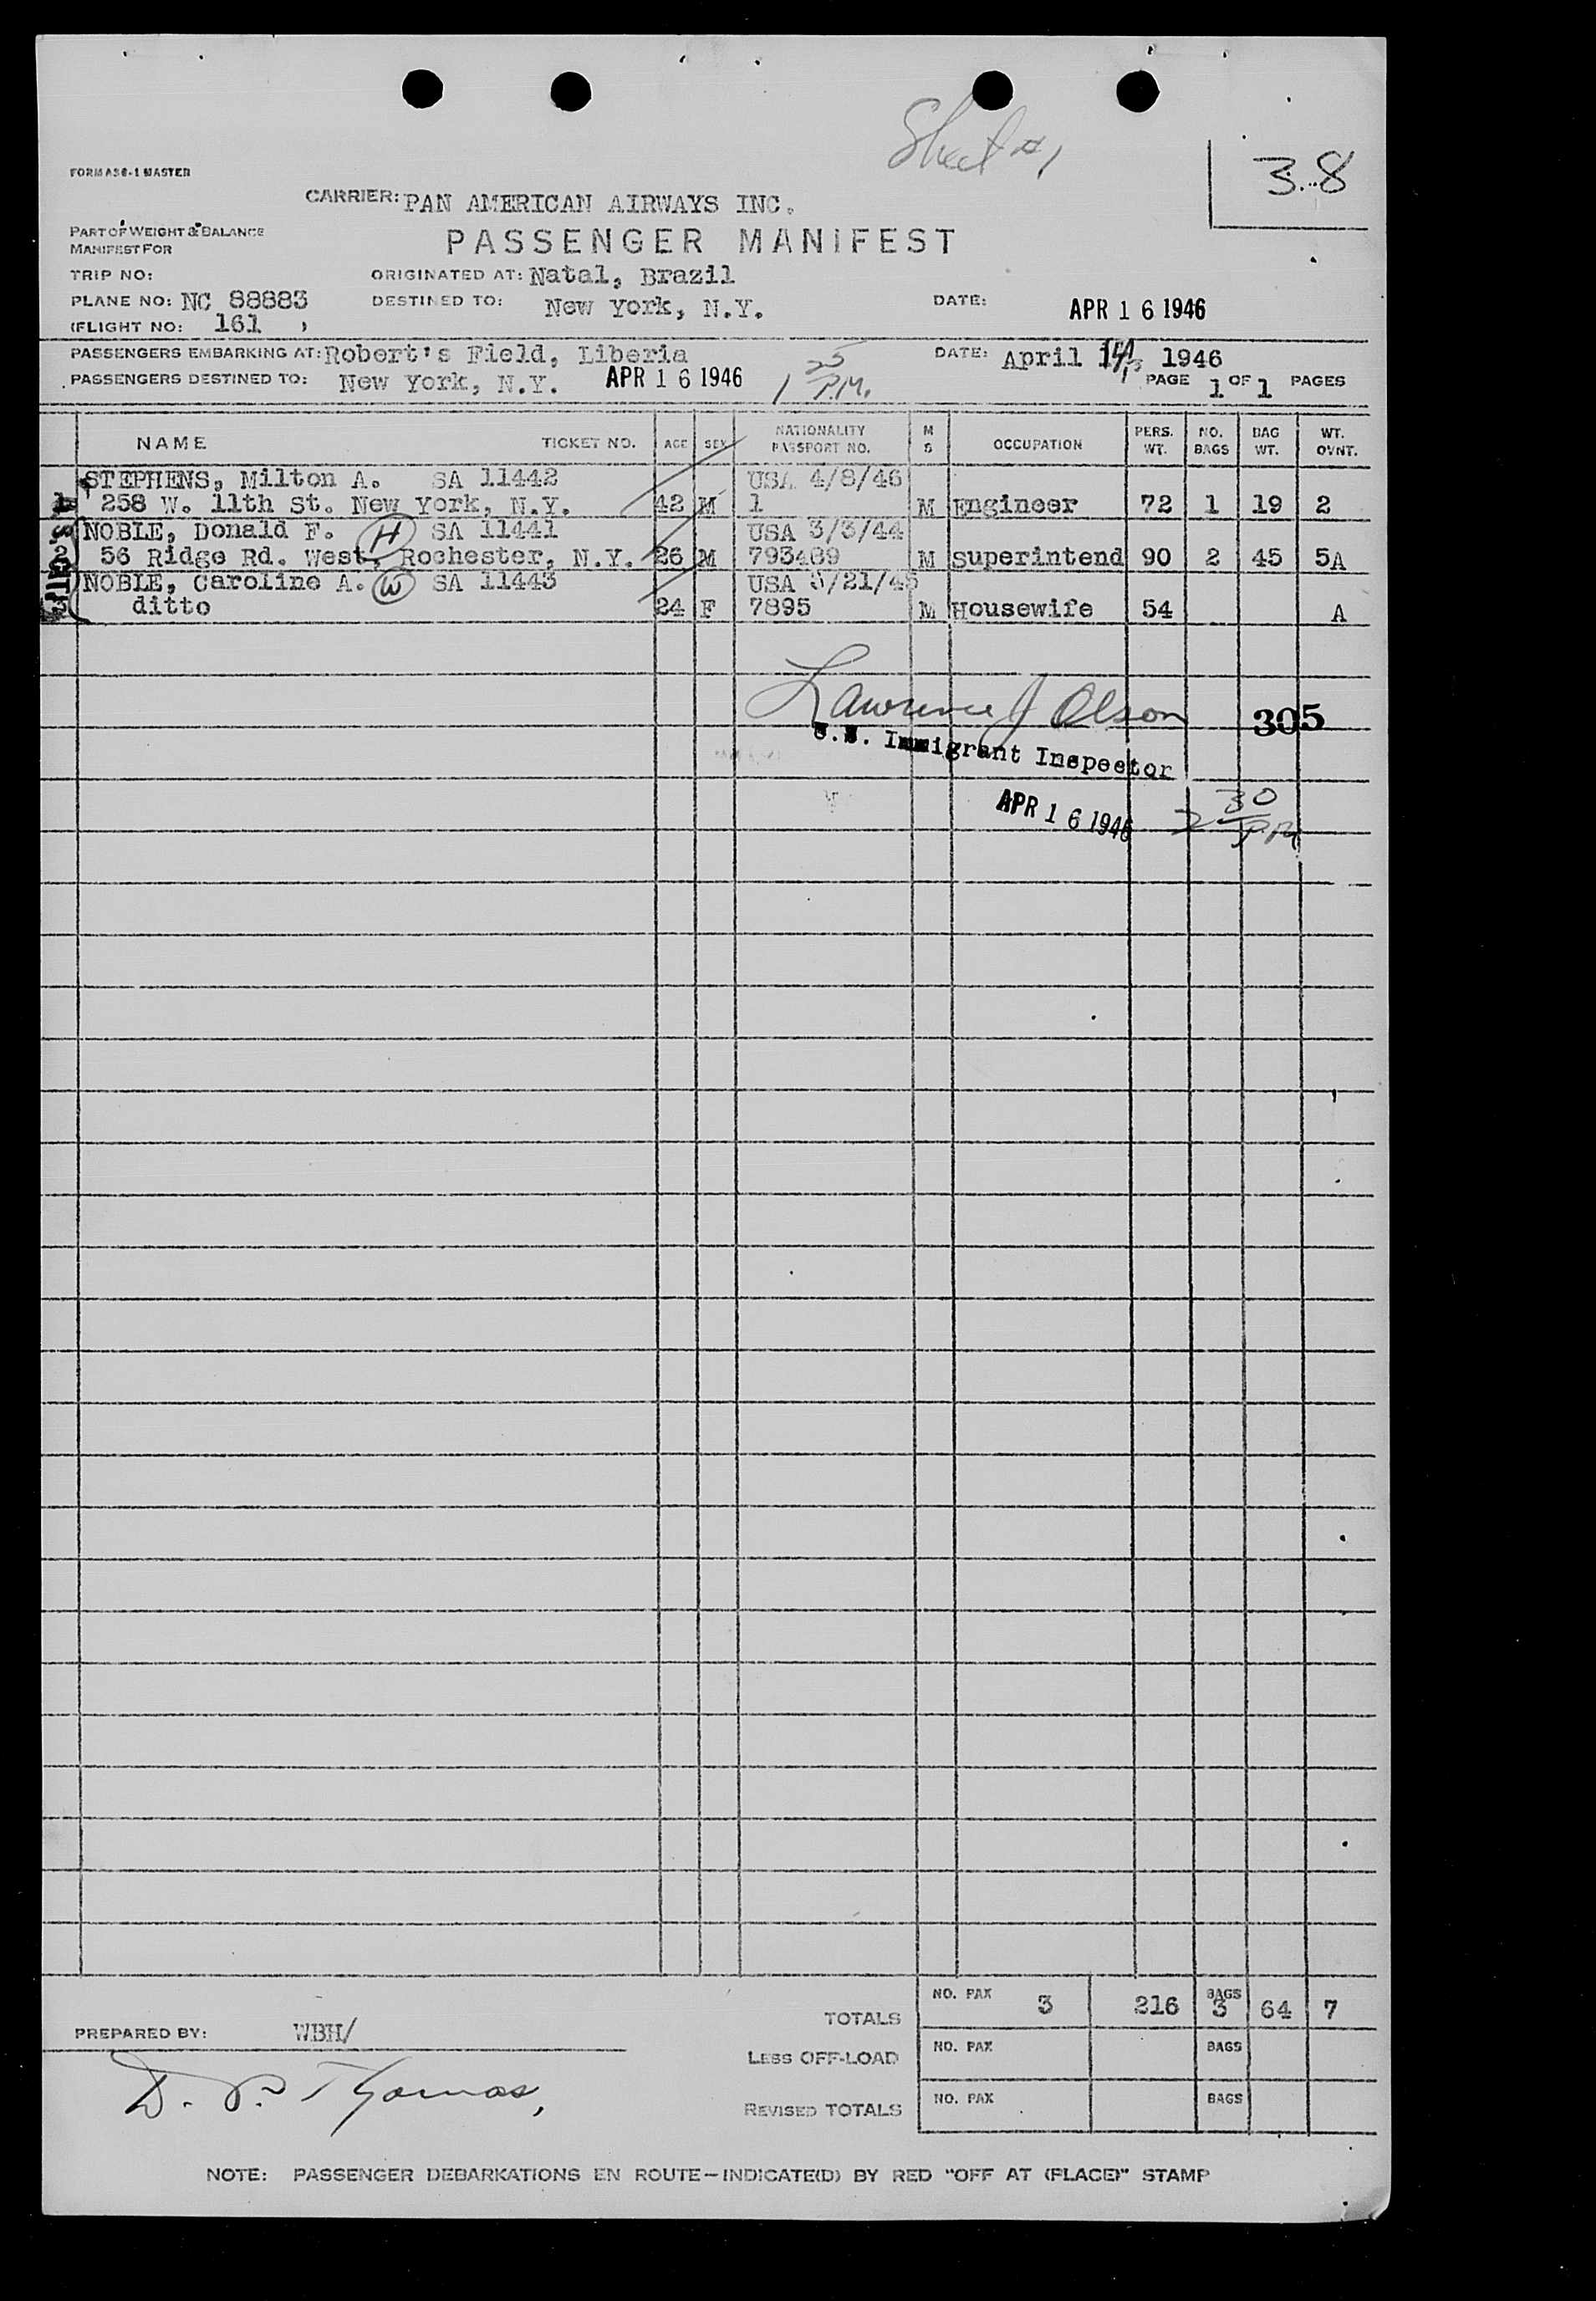 Sheet #1
3.8
FORM AS6-1 MASTER
CARRIER: PAN AMERICAN AIRWAYS INC.
PART OF WEIGHT & BALANCE
MANIFEST FOR
PASSENGER MANIFEST
TRIP NO: ORIGINATED AT: Natal, Brazil
PLANE NO: NC 88883 DESTINED TO: New York, N.Y. DATE: APR 16 1946
(FLIGHT NO: 161 )
PASSENGERS EMBARKING AT: Robert's Field, Liberia DATE: April 1946
PASSENGERS DESTINED TO: New York, N.Y. APR 16 1946 1 25 P.M. PAGE 1 OF 1 PAGES
NAME TICKET NO. AGE SEX NATIONALITY PASSPORT NO. M S OCCUPATION PERS. WT. NO. BAGS BAG WT. WT. OVNT.
STEPHENS, Milton A. SA 11442 USA 4/8/46
258 W. 11th St. New York, N.Y. 42 M 1 M Engineer 72 1 19 2
NOBLE, Donald F. H SA 11441 USA 3/3/44
2 56 Ridge Rd. West, Rochester, N.Y. 26 M 793489 M Superintend 90 2 45 5A
NOBLE, Caroline A. W SA 11443 USA
ditto 24 F 7895 M Housewife 54 A
Lawrence J Olson
305
U.S. Immigrant Inspector
APR 16 1946 2 30 P.M.
TOTALS NO. PAX 3 216 BAGS 3 64 7
PREPARED BY: WBH/
LESS OFF-LOAD NO. PAX BAGS
D. P. Thomas,
REVISED TOTALS NO. PAX BAGS
NOTE: PASSENGER DEBARKATIONS EN ROUTE—INDICATE(D) BY RED "OFF AT (PLACE)" STAMP